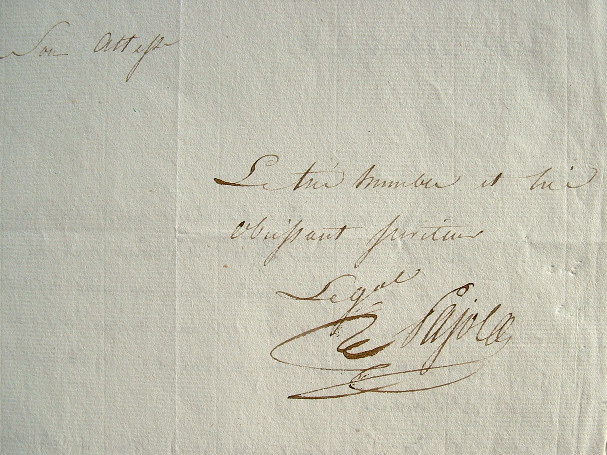 Son Attesse
Le tré humber et tré
obeissant serviteur
Le gal
Pajol